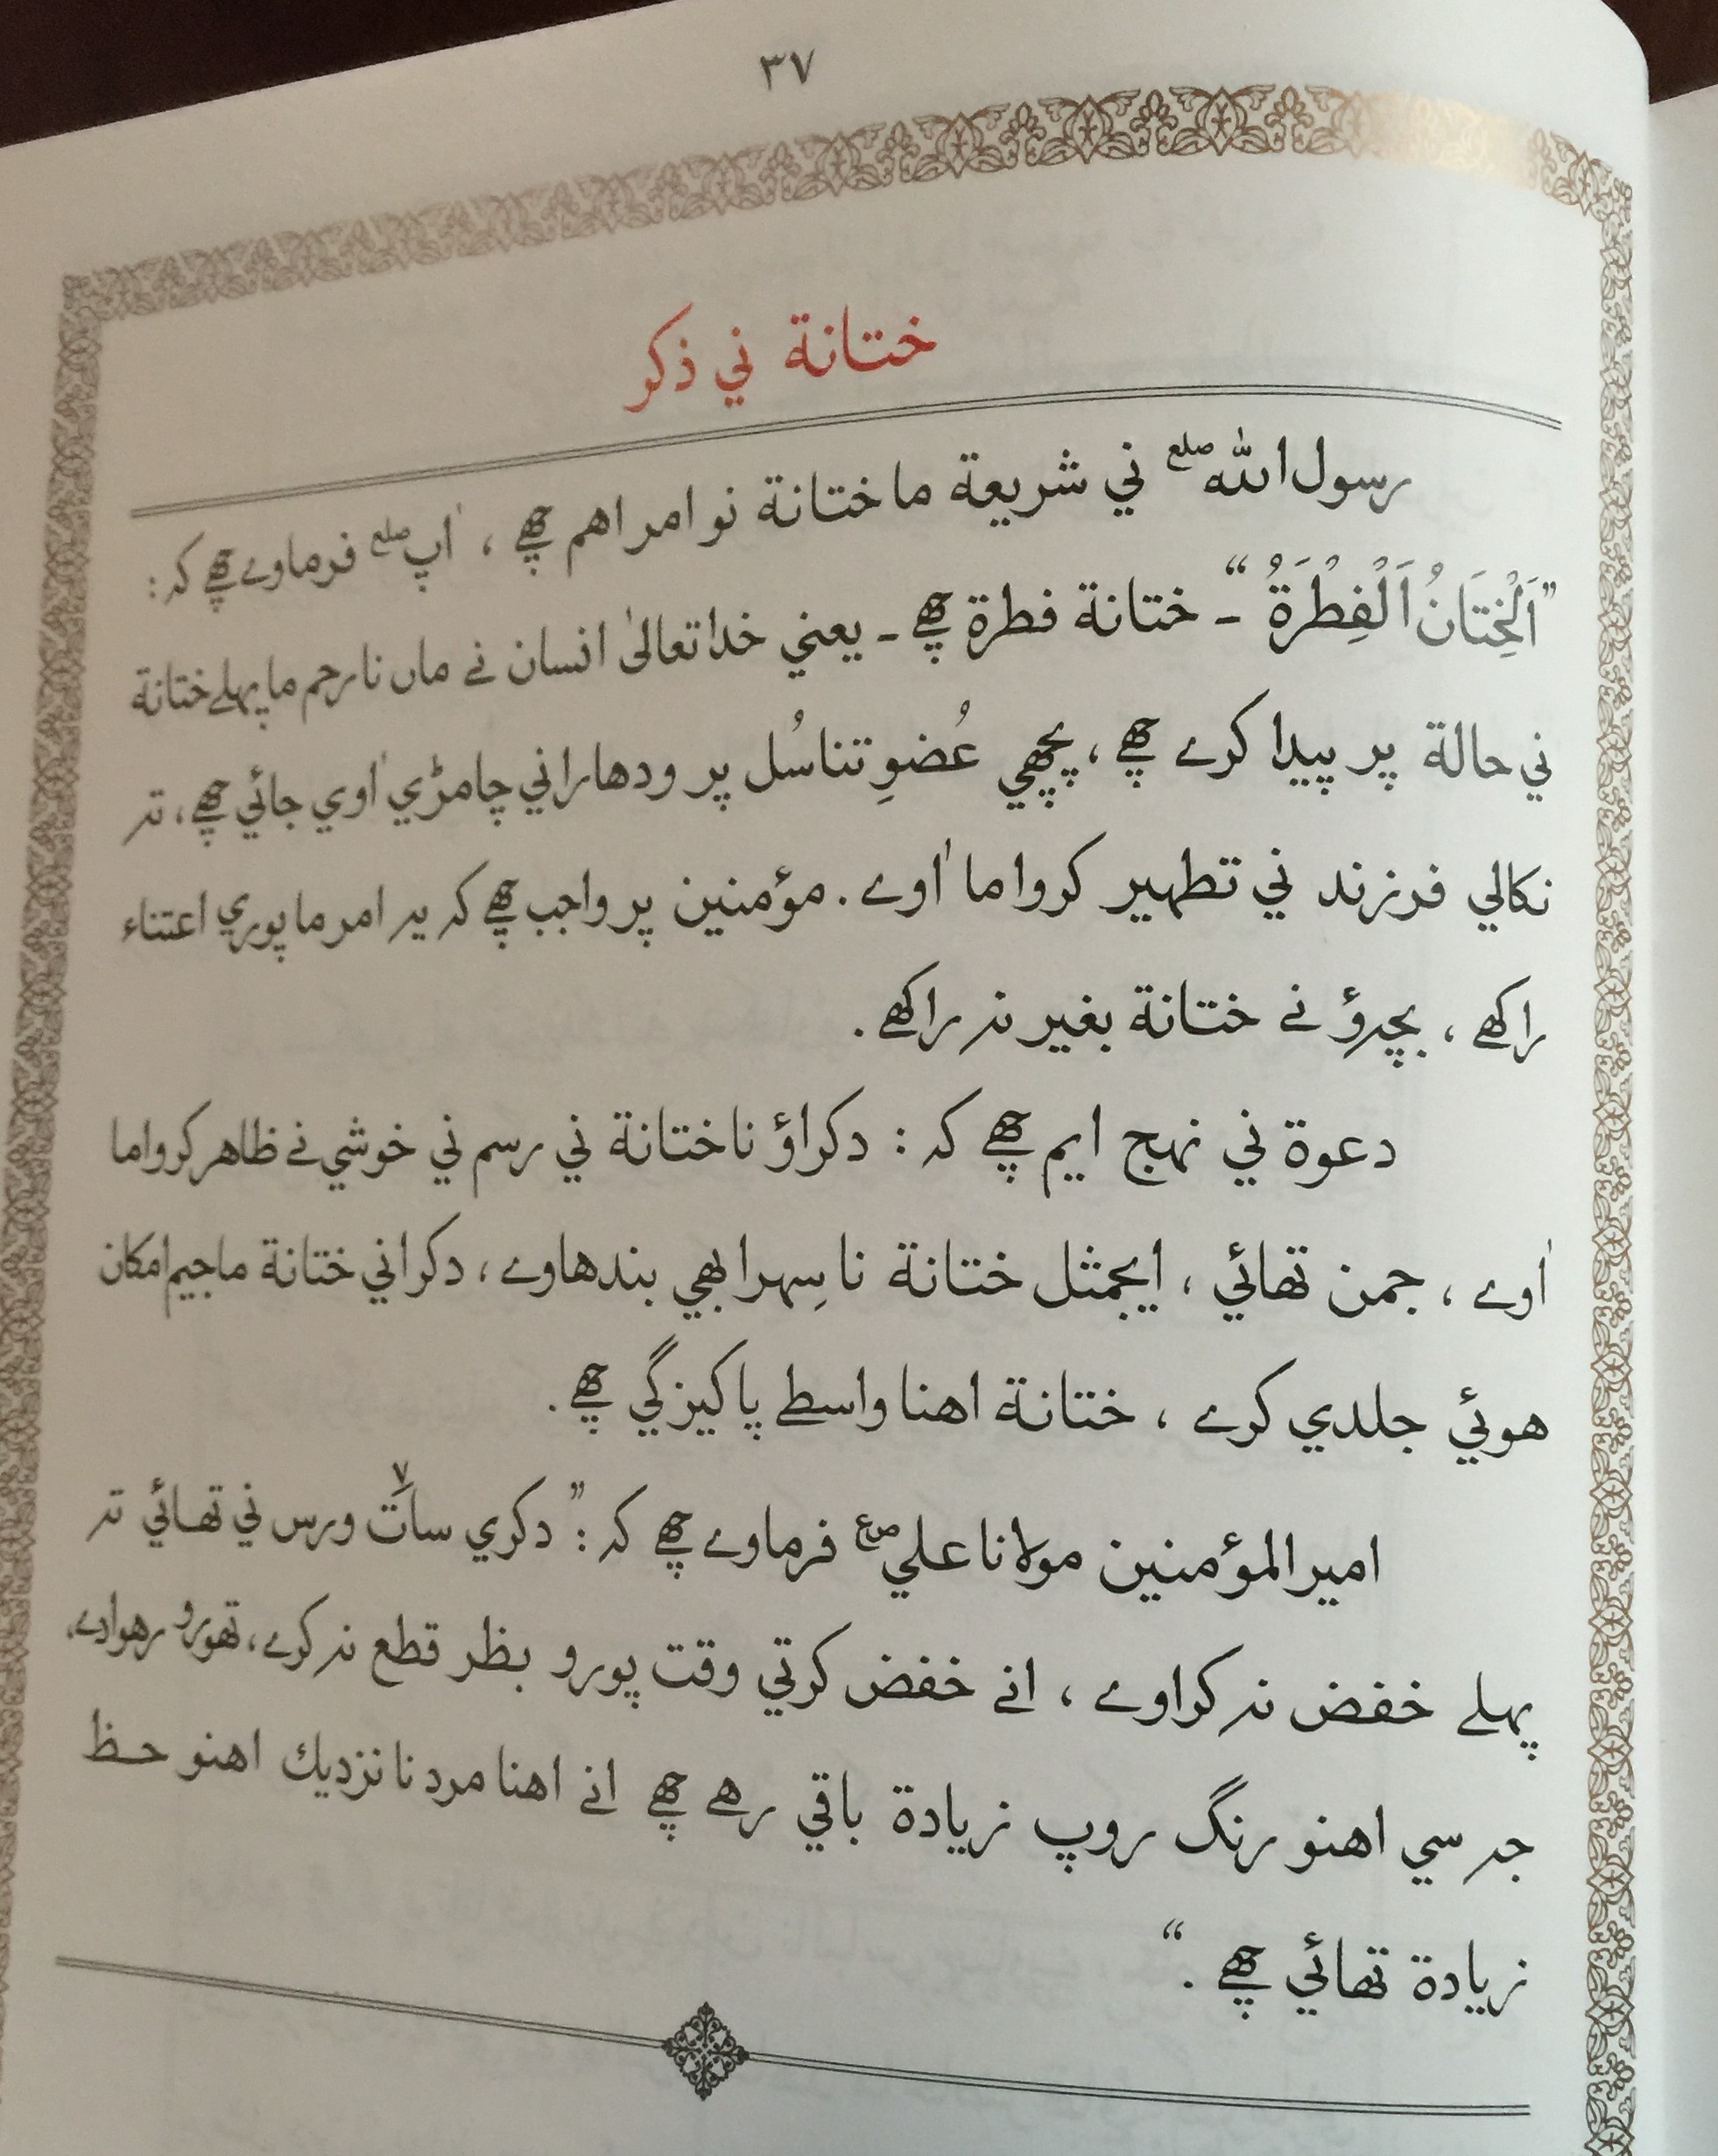 ٣٧
ختانة ني ذكر
رسول الله صلع ني شريعة ما ختانة نو امر اهم چھے ، اٰپ صلع فرماوے چھے كہ :
”اَلْخِتَانُ اَلْفِطْرَةُ“ ـ ختانة فطرة چھے ـ يعني خدا تعالىٰ انسان نے ماں نا رحم ما پہلے ختانة
ني حالة پر پيدا كرے چھے ، پچھي عُضوِ تناسُل پر ودهاراني چامڑي اٰوي جائي چھے ، تہ
نكالي فرزند ني تطهير كرواما اٰوے . مؤمنين پر واجب چھے كہ يہ امر ما پوري اعتناء
راكھے ، بچہ‌ؤ نے ختانة بغير نہ راكھے .
دعوة ني نهج ايم چھے كہ : دكراؤ نا ختانة ني رسم ني خوشي نے ظاهر كرواما
اٰوے ، جمن تھائي ، ايجمثل ختانة نا سِهرا بھي بندهاوے ، دكراني ختانة ما جيم امكان
هوئي جلدي كرے ، ختانة اهنا واسطے پاكيزگي چھے .
امير المؤمنين مولانا علي صع فرماوے چھے كہ : ”دكري سات ٧ ورس ني تھائي تہ
پہلے خفض نہ كراوے ، انے خفض كرتي وقت پورو بظر قطع نہ كرے ، تھورو رهوادے،
جہ سي اهنو رنگ روپ زيادة باقي رهے چھے انے اهنا مرد نا نزديك اهنو حظ
زيادة تھائي چھے .“